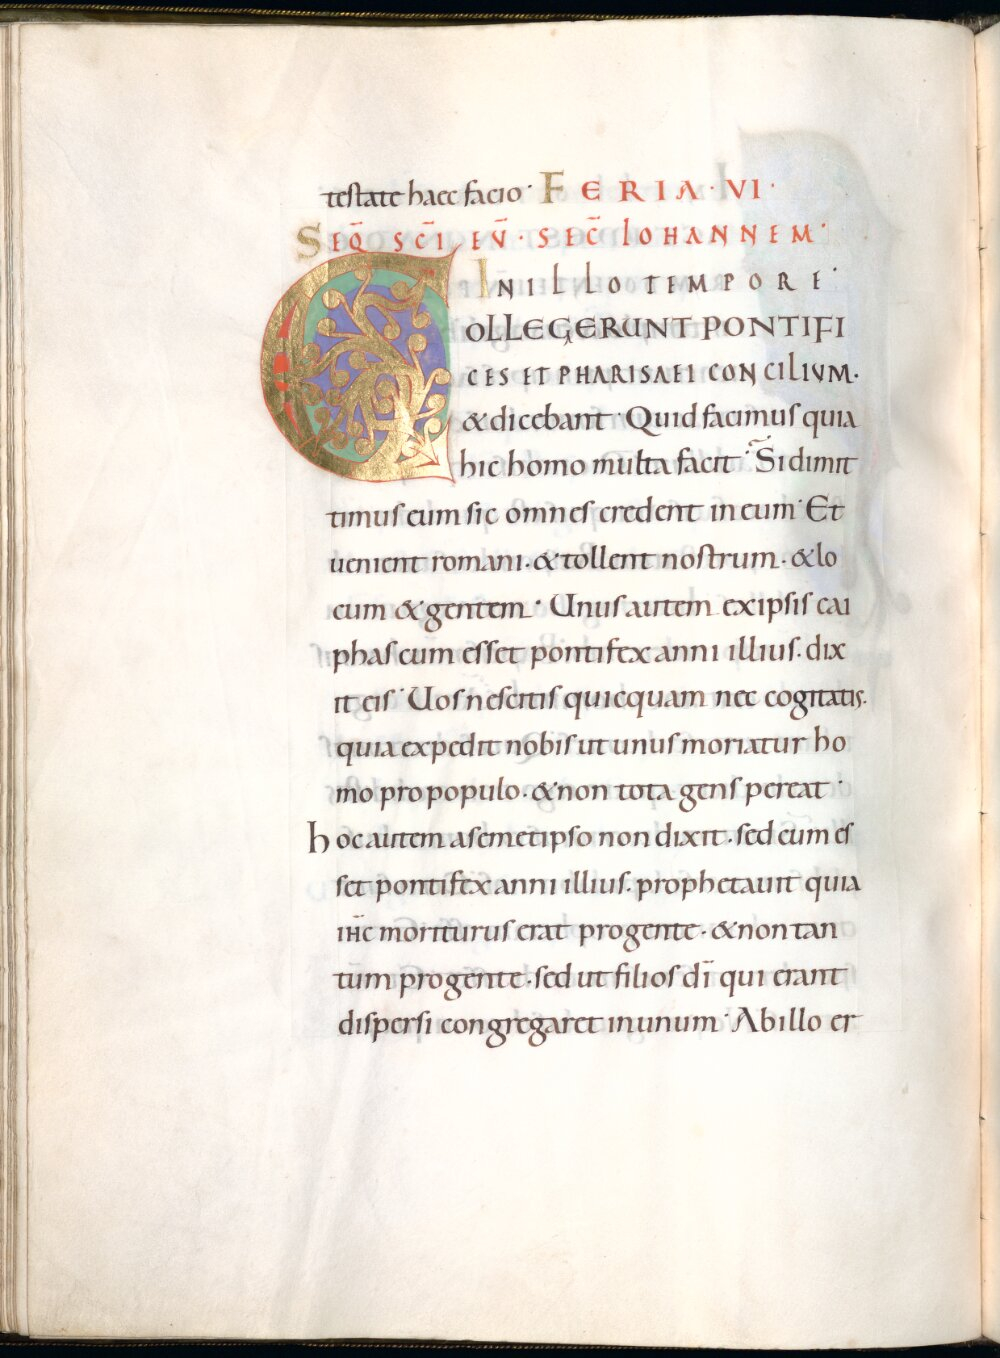 testate haec facio· FERIA·VI·
SEQ̄ SC̄I EV̄·SEC̄ IOHANNEM·
IN ILLO TEMPORE·
COLLEGERUNT PONTIFI
CES ET PHARISAEI CONCILIUM·
& dicebant· Quid facimus quia
hic homo multa facit s̄· Si dimit
timus eum sic omnes credent in eum· Et
uenient romani·& tollent nostrum·& lo
cum & gentem· Unus autem ex ipsis cai
phas cum esset pontifex anni illius·dix
it eis· Uos nescitis quicquam nec cogitatis·
quia expedit nobis ut unus moriatur ho
mo pro populo·& non tota gens pereat·
hoc autem a semetipso non dixit·sed cum es
set pontifex anni illius·prophetauit quia
ihc̄ moriturus erat pro gente·& non tan
tum pro gente·sed ut filios dī qui erant
dispersi congregaret in unum· Ab illo er